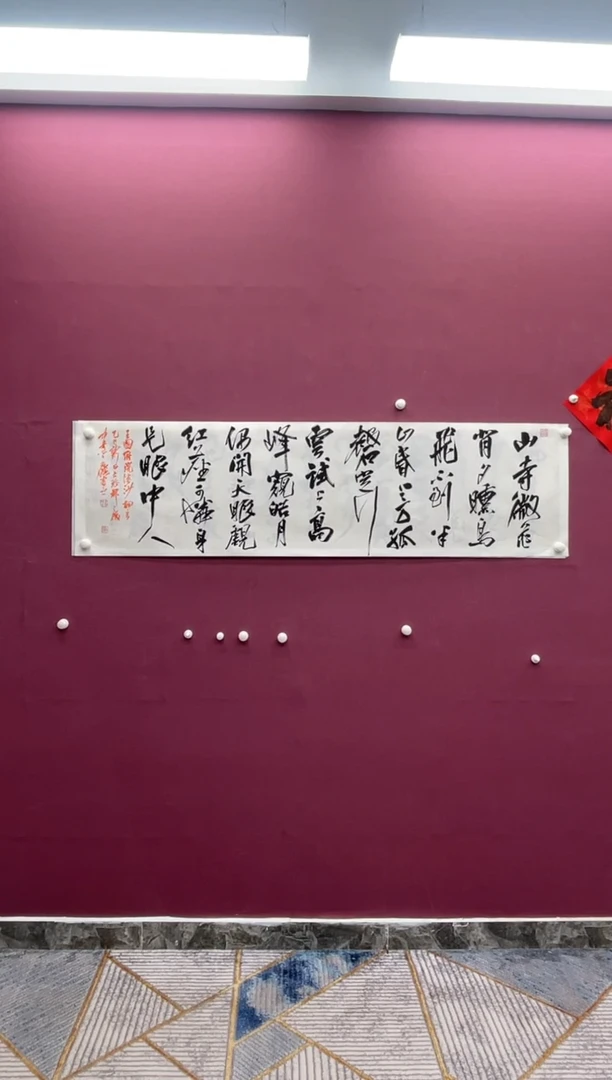 山寺微茫
背夕曛鳥
飛不到半
山昏上方孤
磬定行
雲試上高
峰窺皓月
偶開天眼覷
紅塵可憐身
是眼中人
王國維浣溪沙
乙巳